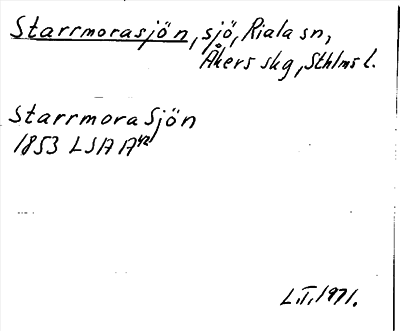 Starrmorasjön, sjö, Riala sn,
Åkers skg, Sthlms l.
Starrmora Sjön
1853 LSA A42
L.T. 1971.